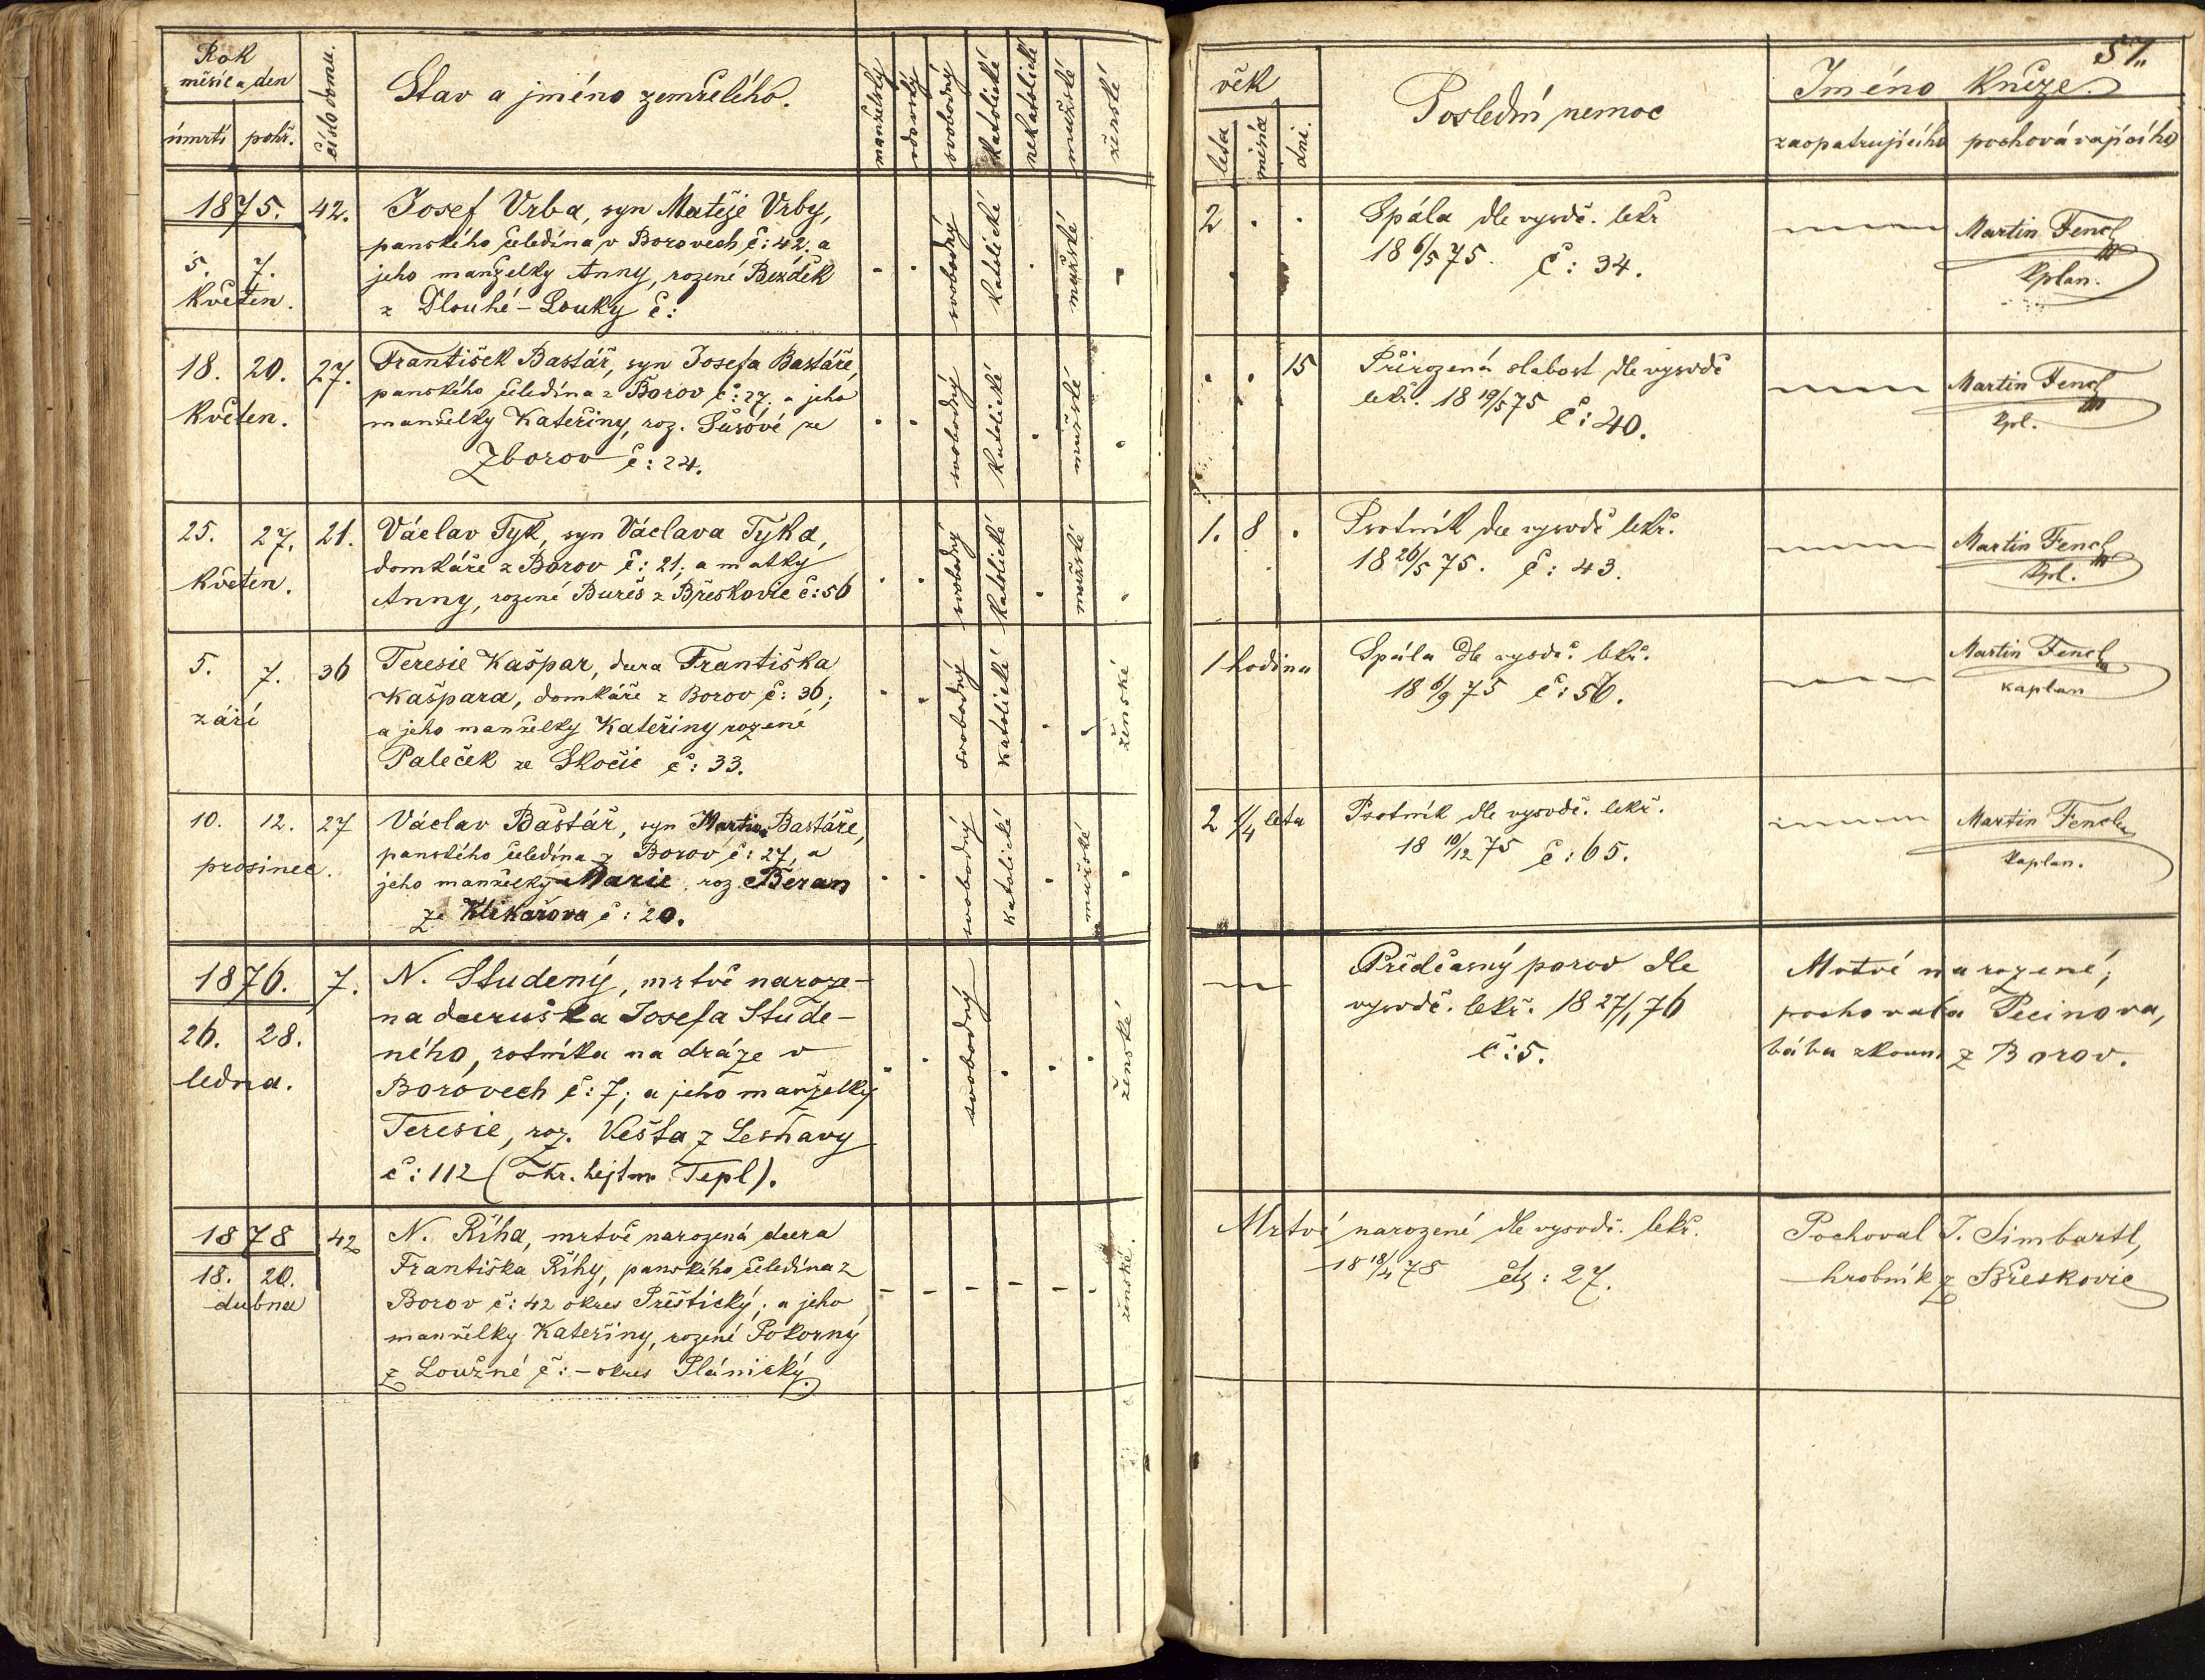 Rok
měsíc a den
úmrtí pohř.
číslo domu.
Stav a jméno zemřelého.
manželský
vdovský
svobodný
katolické
nekatolické
mužské
ženské
věk
léta
měsíce
dni.
Poslední nemoc
51.
Jméno kněze.
zaopatrujícího pochovávajícího
1875. 42.
5. 7.
Květen.
Josef Vrba, syn Matěje Vrby,
panského čeledína v Borovech, č: 42. a
jeho manželky Anny, rozené Bezděk
z Dlouhé-Louky č:
svobodný
katolické
mužské
2 . .
Spála dle vysvdč. lekř
18 6/5 75. č: 34.
Martin Fencl
Kplan.
18. 20. 27.
Květen.
František Bastář, syn Josefa Bastáře,
panského čeledína z Borov č: 27. a jeho
manželky Kateřiny, roz. Šusové ze
Zborov č: 24.
svobodný
katolické
mužské
. . 15
Přirozená slabost dle vysvdč
lekř. 18 19/5 75 č: 40.
Martin Fencl
Kpl.
25. 27. 21.
Květen.
Václav Tyk, syn Václava Tyka,
domkáře z Borov č: 21; a matky
Anny, rozené Bureš z Břeskovic č: 56
svobodný
katolické
mužské
1. 8 .
Psotník dle vysvdč lekř.
18 26/5 75. č: 43.
Martin Fencl
Kpl.
5. 7. 36
září
Teresie Kašpar, dcra Františka
Kašpara, domkáře z Borov č: 36;
a jeho manželky Kateřiny rozené
Paleček ze Skočic č: 33.
svobodný
katolické
ženské
1 hodina
Spála dle vysvdč. lekř.
18 6/9 75 č: 56.
Martin Fencl
kaplan
10. 12. 27
prosinec.
Václav Baštář, syn Martina Bastáře,
panského čeledína z Borov č: 27, a
jeho manželky Marie, roz. Beran
ze Klikařova č: 20.
svobodný
katolické
mužské
2 1/4 léta
Psotník dle vysvdč. lekř.
18 10/12 75 č: 65.
Martin Fencl
Kaplan.
1876. 7.
26. 28.
ledna.
N. Studený, mrtvě naroze-
na dceruška Josefa Stude-
ného, rotníka na dráze v
Borovech č: 7; a jeho manželky
Teresie, roz. Vešta z Leshavy
č: 112 (okr. hejtm. Tepl).
svobodný
ženské
Předčasný porod dle
vysvdč. lekř. 18 27/1 76
č: 5.
Mrtvé narozené,
pochovala Pecinova,
bába zkouš z Borov.
1878 42
18. 20.
dubna
N. Říha, mrtvě narozená dcera
Františka Říhy, panského čeledína z
Borov č: 42 okres Přeštický; a jeho
manželky Kateřiny, rozené Pokorný
z Loužné č: - okres Plánický.
ženské.
Mrtvé narozené dle vysvdč. lekř.
18 18/4 78 čís: 27.
Pochoval J. Simbartl,
hrobník z Břeskovic